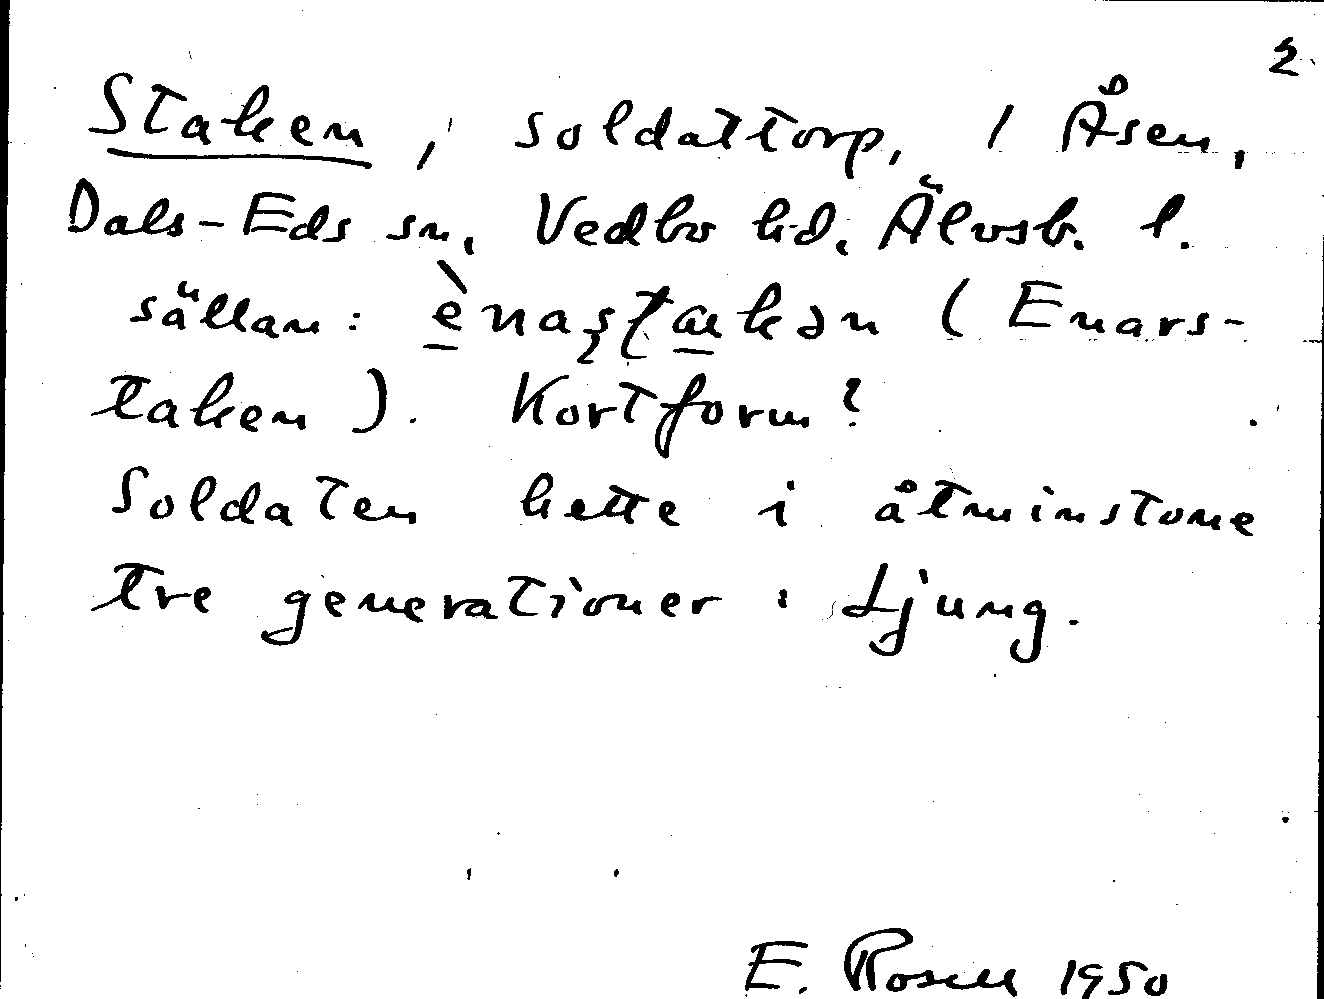 2
Staken, soldattorp, / Åsen,
Dals-Eds sn, Vedbo hd, Älvsb. l.
sällan: ènaʂʈakən (Enars-
taken). Kortform?
Soldaten hette i åtminstone
tre generationer : Ljung.
E. Rosell 1950